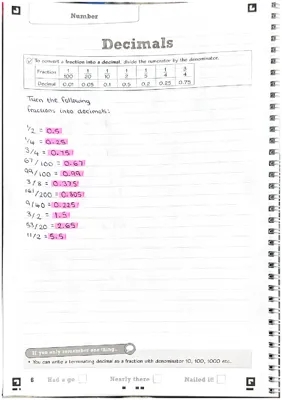 Number
Decimals
To convert a fraction into a decimal, divide the numerator by the denominator.
Fraction 1/100 1/20 1/10 1/2 1/5 1/4 3/4
Decimal 0.01 0.05 0.1 0.5 0.2 0.25 0.75
Turn the following
fractions into decimals:
1/2 = 0.5
1/4 = 0.25
3/4 = 0.75
67/100 = 0.67
99/100 = 0.99
3/8 = 0.375
161/200 = 0.805
9/40 = 0.225
3/2 = 1.5
53/20 = 2.65
11/2 = 5.5
If you only remember one thing...
You can write a terminating decimal as a fraction with denominator 10, 100, 1000 etc.
6 Had a go Nearly there Nailed it!